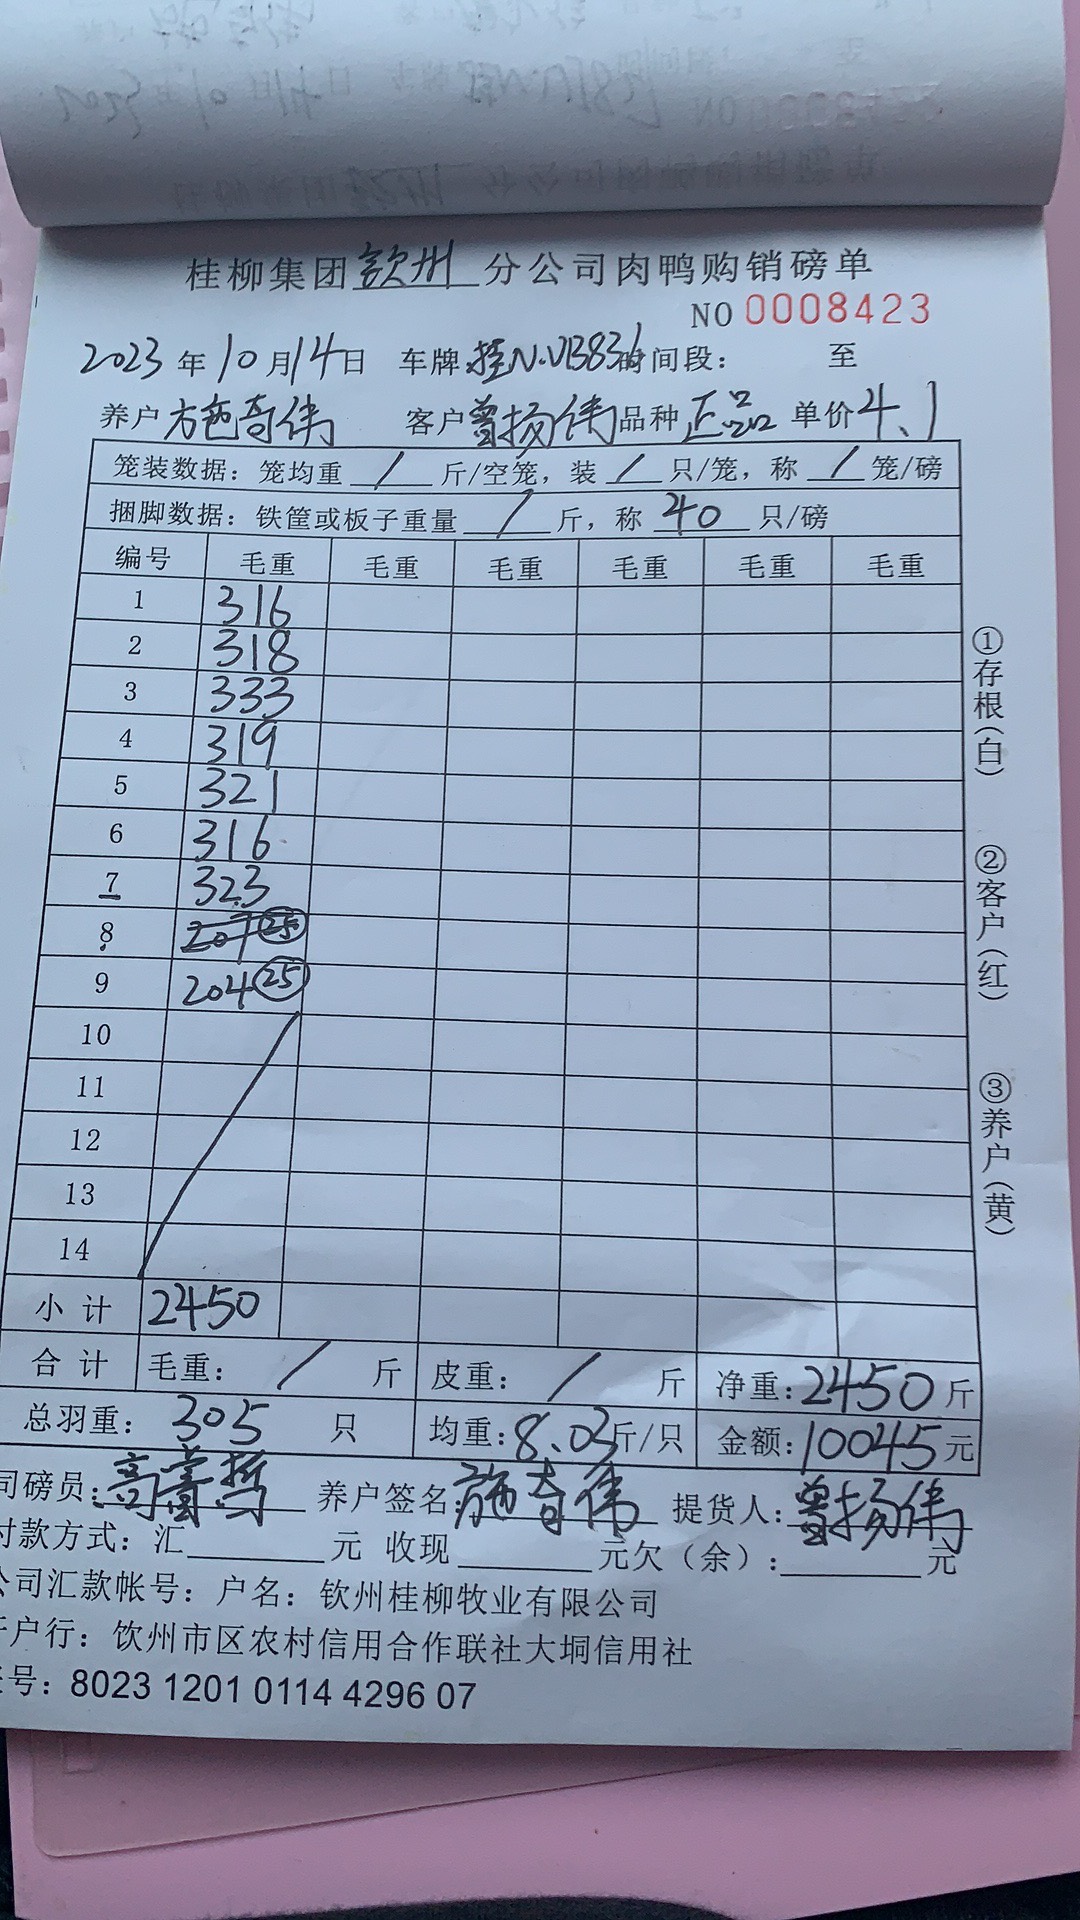 桂柳集团钦州分公司肉鸭购销磅单
NO 0008423
2023年10月14日 车牌:桂N.VB831 时间段: 至
养户 施奇伟 客户 曾扬伟 品种 正品 单价 4.1
笼装数据: 笼均重 / 斤/空笼, 装 / 只/笼, 称 / 笼/磅
捆脚数据: 铁筐或板子重量 / 斤, 称 40 只/磅
编号 毛重 毛重 毛重 毛重 毛重 毛重
1 316
2 318
3 333
4 319
5 321
6 316
7 323
8 207 25
9 204 25
10
11
12
13
14
小计 2450
合计 毛重: / 斤 皮重: / 斤 净重: 2450 斤
总羽重: 305 只 均重: 8.03 斤/只 金额: 10045 元
司磅员: 养户签名: 施奇伟 提货人: 曾扬伟
付款方式: 汇 元 收现 元 欠(余): 元
公司汇款帐号: 户名: 钦州桂柳牧业有限公司
开户行: 钦州市区农村信用合作联社大垌信用社
号: 8023 1201 0114 4296 07
①存根(白)
②客户(红)
③养户(黄)